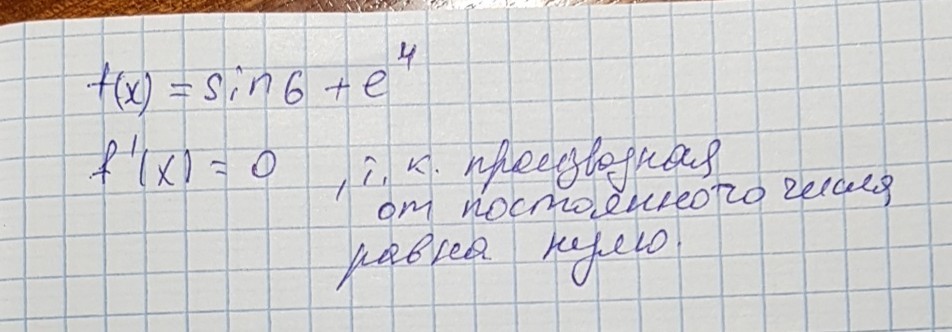 f(x) = sin 6 + e⁴
f'(x) = 0 , т. к. производная
от постоянного числа
равна нулю.